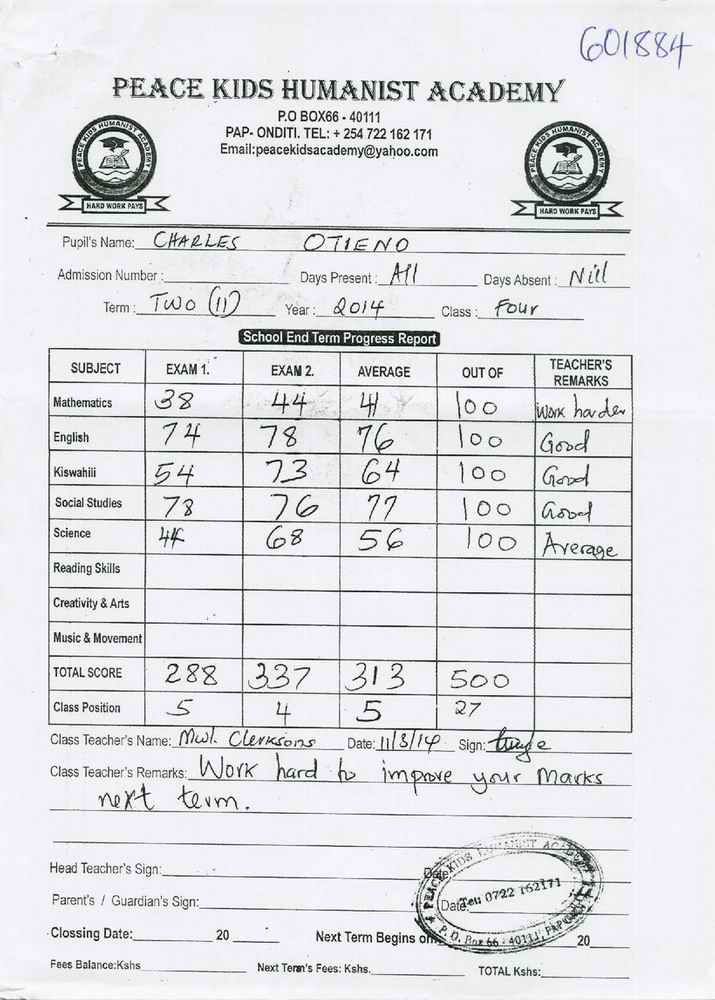 601884
PEACE KIDS HUMANIST ACADEMY
P.O BOX66 - 40111
PAP- ONDITI. TEL: + 254 722 162 171
Email:peacekidsacademy@yahoo.com
PEACE KIDS HUMANIST ACADEMY
HARD WORK PAYS
PEACE KIDS HUMANIST ACADEMY
HARD WORK PAYS
Pupil's Name: CHARLES OTIENO
Admission Number : Days Present : All Days Absent : Nill
Term : Two (11) Year : 2014 Class : Four
School End Term Progress Report
SUBJECT EXAM 1. EXAM 2. AVERAGE OUT OF TEACHER'S REMARKS
Mathematics 38 44 41 100 Work harder
English 74 78 76 100 Good
Kiswahili 54 73 64 100 Good
Social Studies 78 76 77 100 Good
Science 44 68 56 100 Average
Reading Skills
Creativity & Arts
Music & Movement
TOTAL SCORE 288 337 313 500
Class Position 5 4 5 27
Class Teacher's Name: Mwl. Clerksons Date: 11/8/14 Sign:
Class Teacher's Remarks: Work hard to improve your Marks
next term.
Head Teacher's Sign: Date
Parent's / Guardian's Sign: Date:
PEACE KIDS HUMANIST ACADEMY
Tel: 0722 162171
P. O. Box 66 - 40111, PAP
Clossing Date: 20 Next Term Begins on 20
Fees Balance:Kshs Next Term's Fees: Kshs. TOTAL Kshs: